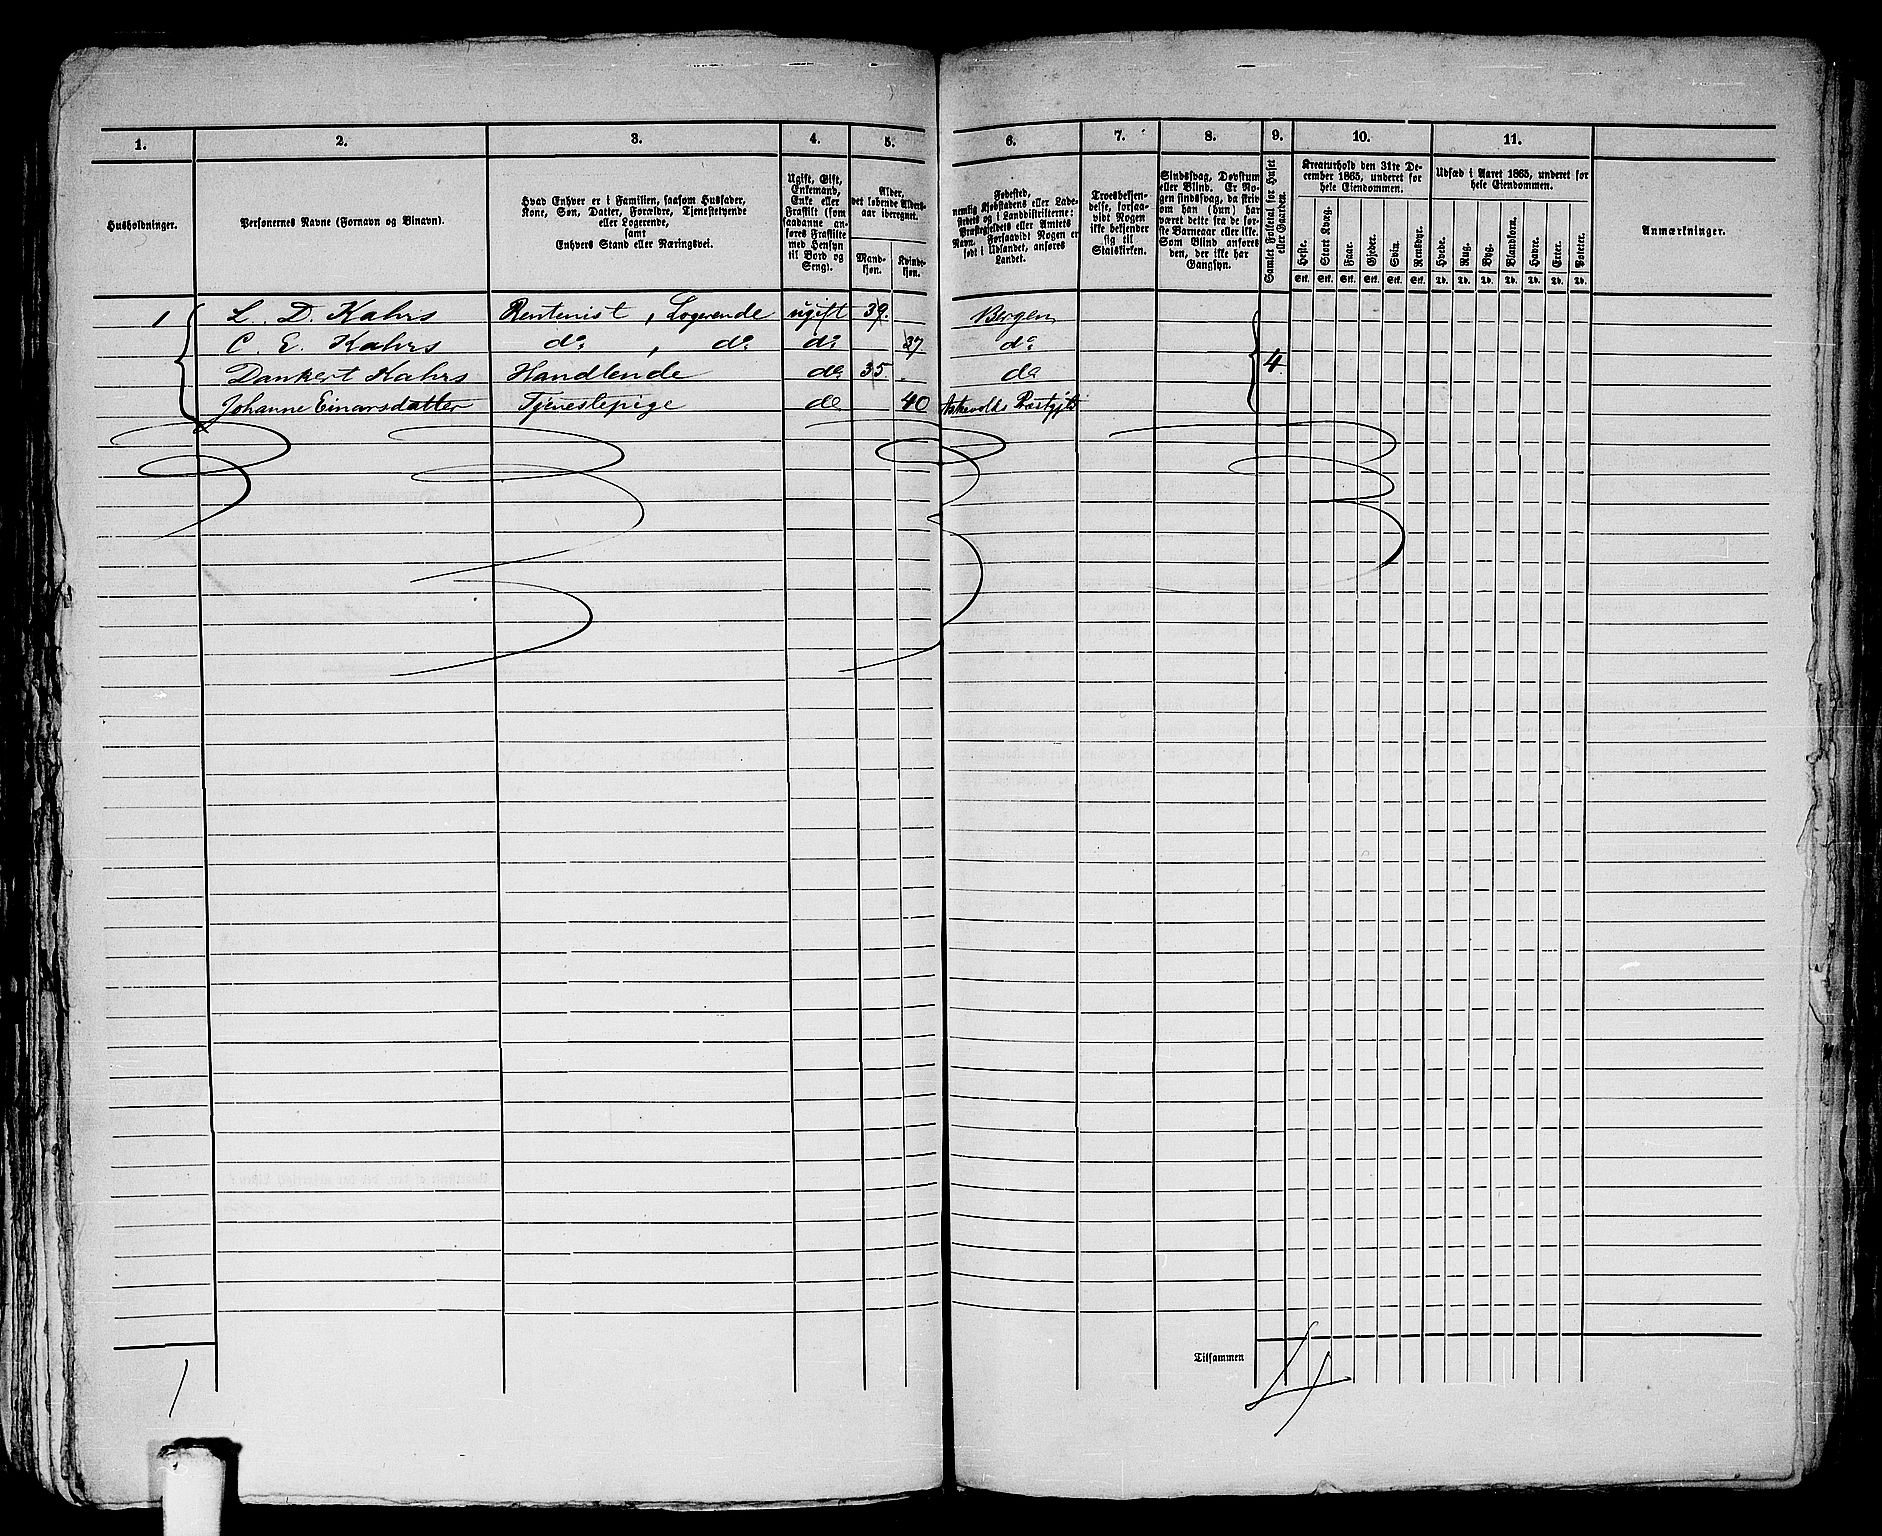 1. 2. 3. 4. 5. 6. 7. 8. 9. 10. 11.
Husholdninger.
Personernes Navne (Fornavn og Binavn).
Hvad Enhver er i Familien, saasom Husfader,
Kone, Søn, Datter, Forældre, Tjenestetyende
eller Logerende,
samt
Enhvers Stand eller Næringsvei.
Ugift, Gift,
Enkemand,
Enke eller
Fraskilt (som
saadanne an-
føres Fraskilte
med Hensyn
til Bord og
Seng).
Alder,
det løbende Alders-
aar iberegnet.
Mand-
kjøn.
Kvinde-
kjøn.
Fødested,
nemlig Kjøbstadens eller Lade-
stedets og i Landdistrikterne:
Præstegjeldets eller Amtets
Navn. Forsaavidt Nogen er
født i Udlandet, anføres
Landet.
Troesbekjen-
delse, forsaa-
vidt Nogen
ikke bekjender
sig til
Statskirken.
Sindssvag, Døvstum
eller Blind. Er No-
gen sindssvag, da skriv
om han (hun) har
været dette fra de før-
ste Barneaar eller ikke.
Som Blind anføres
den, der ikke har
Gangsyn.
Samlet Folketal for Huset
eller Gaarden.
Kreaturhold den 31te De-
cember 1865, underet for
hele Eiendommen.
Heste. Stort Kvæg. Faar. Gjeder. Sviin. Rensdyr.
Stk. Stk. Stk. Stk. Stk. Stk.
Udsæd i Aaret 1865, underet for
hele Eiendommen.
Hvede. Rug. Byg. Blandkorn. Havre. Erter. Poteter.
Td. Td. Td. Td. Td. Td. Td.
Anmærkninger.
1 L. D. Kahrs Rentenist, Logerende ugift 39. Bergen
C. E. Kahrs do , do do 37 do
Dankert Kahrs Handlende do 35. do 4
Johanne Einarsdatter Tjenestepige do 40 Askevolds Præstgjld
Tilsammen
1 4